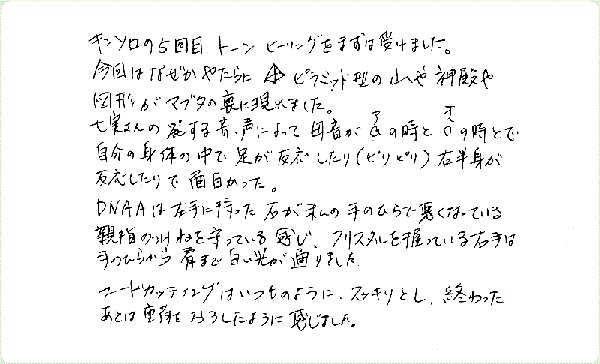 キンソロの5回目 トーンヒーリングをまずは受けました。
今回はなぜかやたらに ピラミッド型の山や神殿や
図形がマブタの裏に現れました。
七実さんの発する音、声によって 母音が ア a の時と オ o の時とで
自分の身体の中で 足が反応したり(ビリビリ) 右半身が
反応したりで 面白かった。
DNAAは左手に持った石が私の手のひらで悪くなっている
親指のつけねを守っている感じ、クリスタルを握っている右手は
手のひらから肩まで白い光が通りました。
コードカッティングはいつものように、スッキリとし、終わった
あとは重荷をおろしたように感じました。